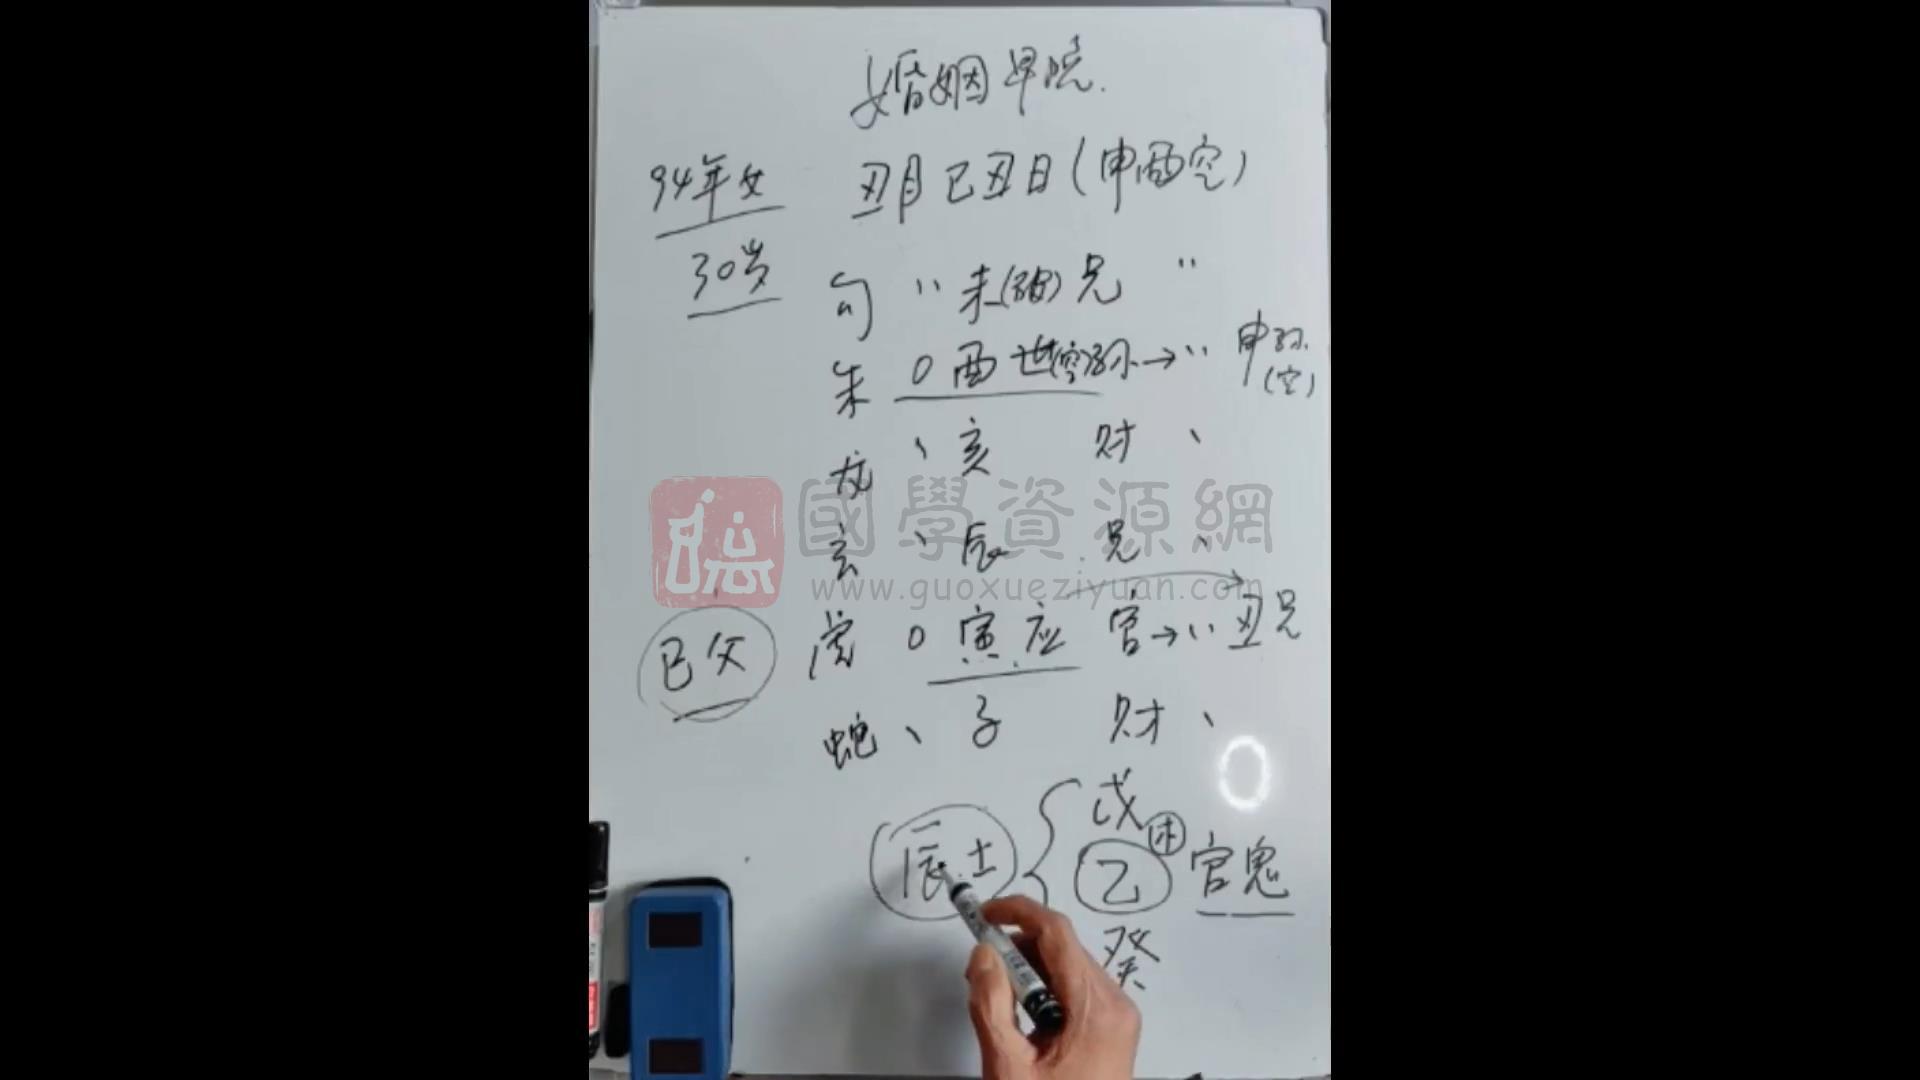 婚姻早晚.
94年女 丑月己丑日(申酉空)
30岁
勾 〃 未(破)兄 〃
朱 O 酉世(空)孙→〃 申孙(空)
龙 、 亥 财 、
玄 、 辰 兄 、
巳父 虎 O 寅应 官→〃 丑兄
蛇 、 子 财 、
辰土 { 戊
乙 木 官鬼
癸
國學資源網
www.guoxueziyuan.com